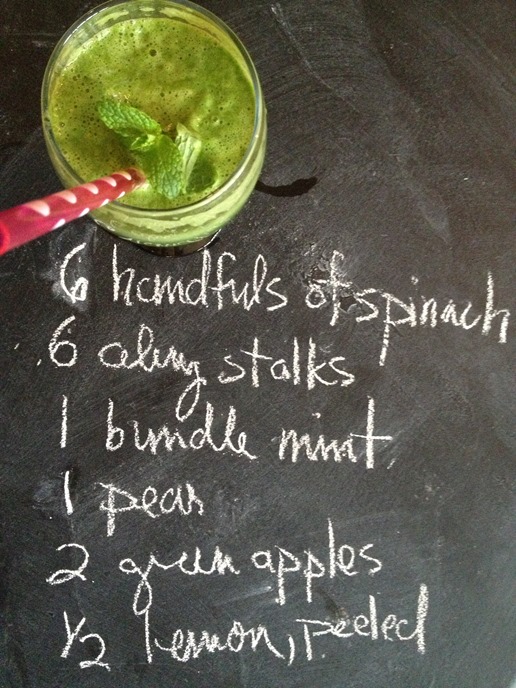 6 handfuls of spinach
6 celery stalks
1 bundle mint
1 pear
2 green apples
1/2 lemon, peeled